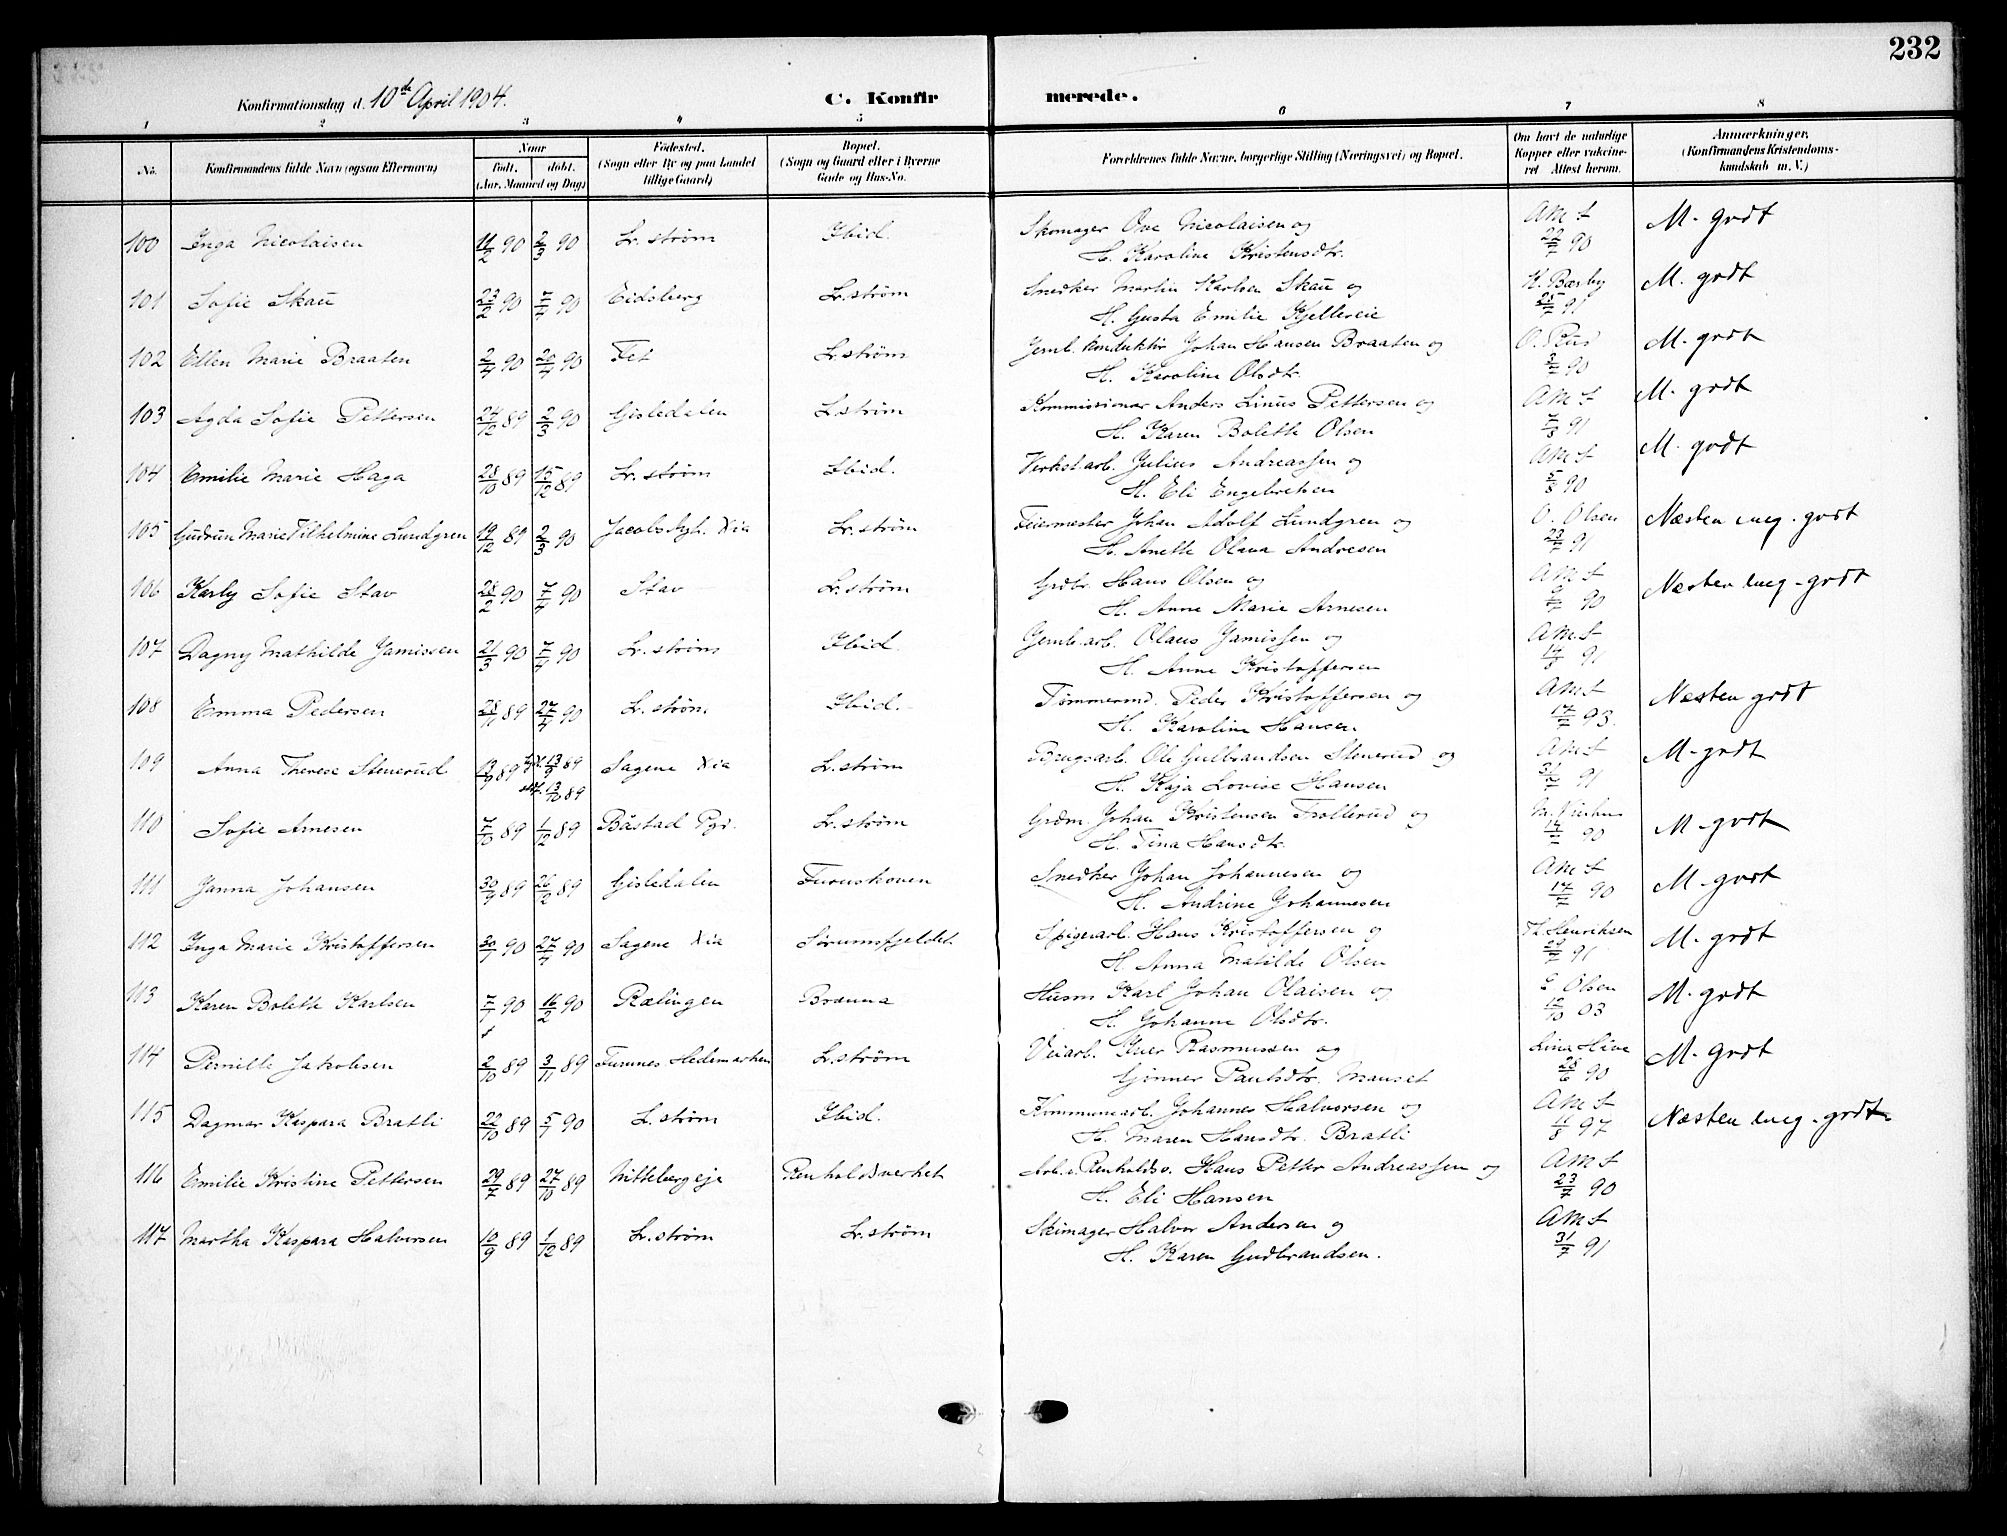 232
Konfirmationsdag d. 10de April 1904.
C. Konfirmerede.
1 2 3 4 5 6 7 8
No. Konfirmandens fulde Navn (ogsaa Efternavn)
Naar født. døbt. (Aar, Maaned og Dag)
Fødested. (Sogn eller By og paa Landet tillige Gaard)
Bopæl. (Sogn og Gaard eller i Byerne Gade og Hus-No.
Forældrenes fulde Navne, borgerlige Stilling (Næringsvei) og Bopæl.
Om havt de naturlige Kopper eller vakcineret Attest herom.
Anmærkninger. (Konfirmandens Kristendomskundskab m. V.)
100 Inga Nicolaisen 11/2 90 2/3 90 Lr. strøm Ibid. Skomager Ove Nicolaisen og AMS M. godt
H. Karoline Kristensdtr. 22/7 90
101 Sofie Skau 23/2 90 7/4 90 Eidsberg Lr. strøm Snedker Martin Karlsen Skau og M. godt
H. Gusta Emilie Kjellereie 25/7 91
102 Ellen Marie Braaten 2/4 90 20/4 90 Fet Lr. strøm Jernb. konduktør Johan Hansen Braaten og O. Rud M. godt
H. Karoline Olsdtr. 3/7 90
103 Agda Sofie Pettersen 24/12 89 2/3 90 Gisledalen L. strøm Kommissionær Anders Linus Pettersen og AMS M. godt
H. Karen Bolette Olsen 91
104 Emilie Marie Haga 28/10 89 15/12 89 Lr. strøm Ibid. Verkst. arb. Julius Andreassen og AMS M. godt
H. Eli Engebretsen 5/8 90
105 Gudrun Marie Vilhelmine Lundgren 19/12 89 2/3 90 Lr. strøm Feiermester Johan Adolf Lundgren og O. Olsen Næsten meg. godt
H. Anette Olava Andresen 23/7 91
106 Karly Sofie Stav 28/2 90 7/4 90 Stav Lr. strøm Grdbr. Hans Olsen og AMS Næsten meg. godt
H. Anne Marie Arnesen 90
107 Dagny Mathilde Jamissen 21/3 90 7/4 90 Lr. strøm Ibid. Jernb. arb. Olaus Jamissen og AMS
H. Anne Kristoffersen 14/8 91
108 Emma Pedersen 28/11 89 27/4 90 Lr. strøm Ibid. Tømmermd. Peder Kristoffersen og AMS Næsten godt
H. Karoline Hansen 17/7 93.
109 Anna Therese Stenerud 13/9 89 13/9 89 Sagene Xia Lr. strøm Brugsarb. Ole Gulbrandsen Stenerud og AMS M. godt
13/10 89 H. Kaja Lovise Hansen 31/7 91
110 Sofie Arnesen 7/10 89 1/12 89 Båstad Pgr. Lr. strøm Grdm. Johan Kristensen Trollerud og M. godt
H. Tina Hansdtr. 90
111 Janna Johansen 30/9 89 26/12 89 Gisledalen Furuskoven Snedker Johan Johannesen og AMS M. godt
H. Andrine Johannesen 17/7 90
112 Inga Marie Kristoffersen 30/1 90 27/4 90 Sagene Xia Sørumsfjeldet Spigerarb. Hans Kristoffersen og Th. Henriksen M. godt
H. Anna Matilde Olsen 91
113 Karen Bolette Karlsen 7/1 90 16/2 90 Rælingen Brænna Husm Karl Johan Olaisen og Olsen M. godt
H. Johanne Olsdtr. 12/10 03
114 Pernille Jakobsen 2/10 89 3/11 89 Furnes Hedemarken Lr. strøm Veiarb. Iver Rasmussen og Lina M. godt
Gjønner Paulsdtr. 90
115 Dagmar Kaspara Bratli 22/10 89 5/1 90 L. strøm Ibid. Kommunearb. Johannes Halvorsen og AMS Næsten meg. godt
H. Maren Hansdtr. Bratli 11/8 97
116 Emilie Kristine Pettersen 29/7 89 27/10 89 Nittebergeje Renholdsverket Arb. v. Renholdsv. Hans Petter Andreassen og AMS
H. Eli Hansen 23/7 90
117 Martha Kaspara Halvorsen 10/9 89 1/12 89 Lr. strøm Lr. strøm Skomager Halvor Andersen og AMS
H. Karen Gudbrandsen. 31/7 91